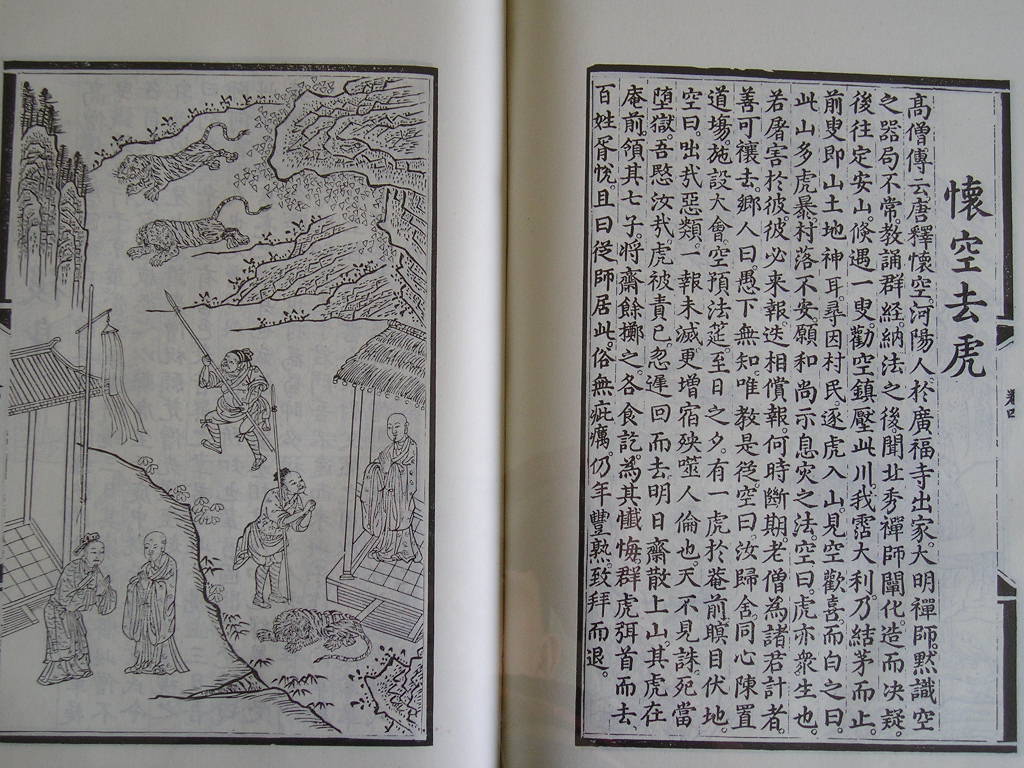 懷空去虎
高僧傳云。唐釋懷空。河陽人。於廣福寺出家。大明禪師。默識空
之器局不常。教誦群經。納法之後。聞北秀禪師闡化。造而决疑。
後往定安山。倏遇一叟。勸空鎮壓此川。我霑大利。乃結茅而止。
前叟即山土地神耳。尋因村民。逐虎入山。見空歡喜。而白之曰。
此山多虎暴。村落不安。願和尚示息灾之法。空曰。虎亦衆生也。
若屠害於彼。彼必来報。迭相償報。何時斷期。老僧為諸君計者。
善可禳去。鄉人曰。愚下無知。唯教是從。空曰。汝歸舍同心陳置
道塲。施設大會。空預法筵。至日之夕。有一虎於菴前瞑目伏地。
空曰。咄哉惡類。一報未滅。更增宿殃。噬人倫也。天不見誅。死當
墮獄。吾愍汝哉。虎被責已。忽遲回而去。明日齋散上山。其虎在
庵前。領其七子。將齋餘擲之。各食訖。為其懺悔。群虎弭首而去。
百姓胥恱。且曰。從師居此。俗無疵癘。仍年豐熟。致拜而退。
卷四